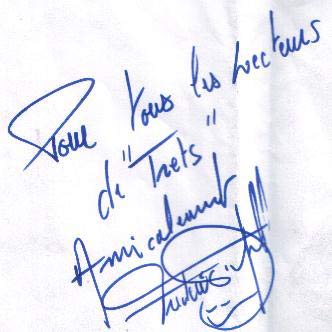 Pour tous les lecteurs
de "Trets"
Amicalement